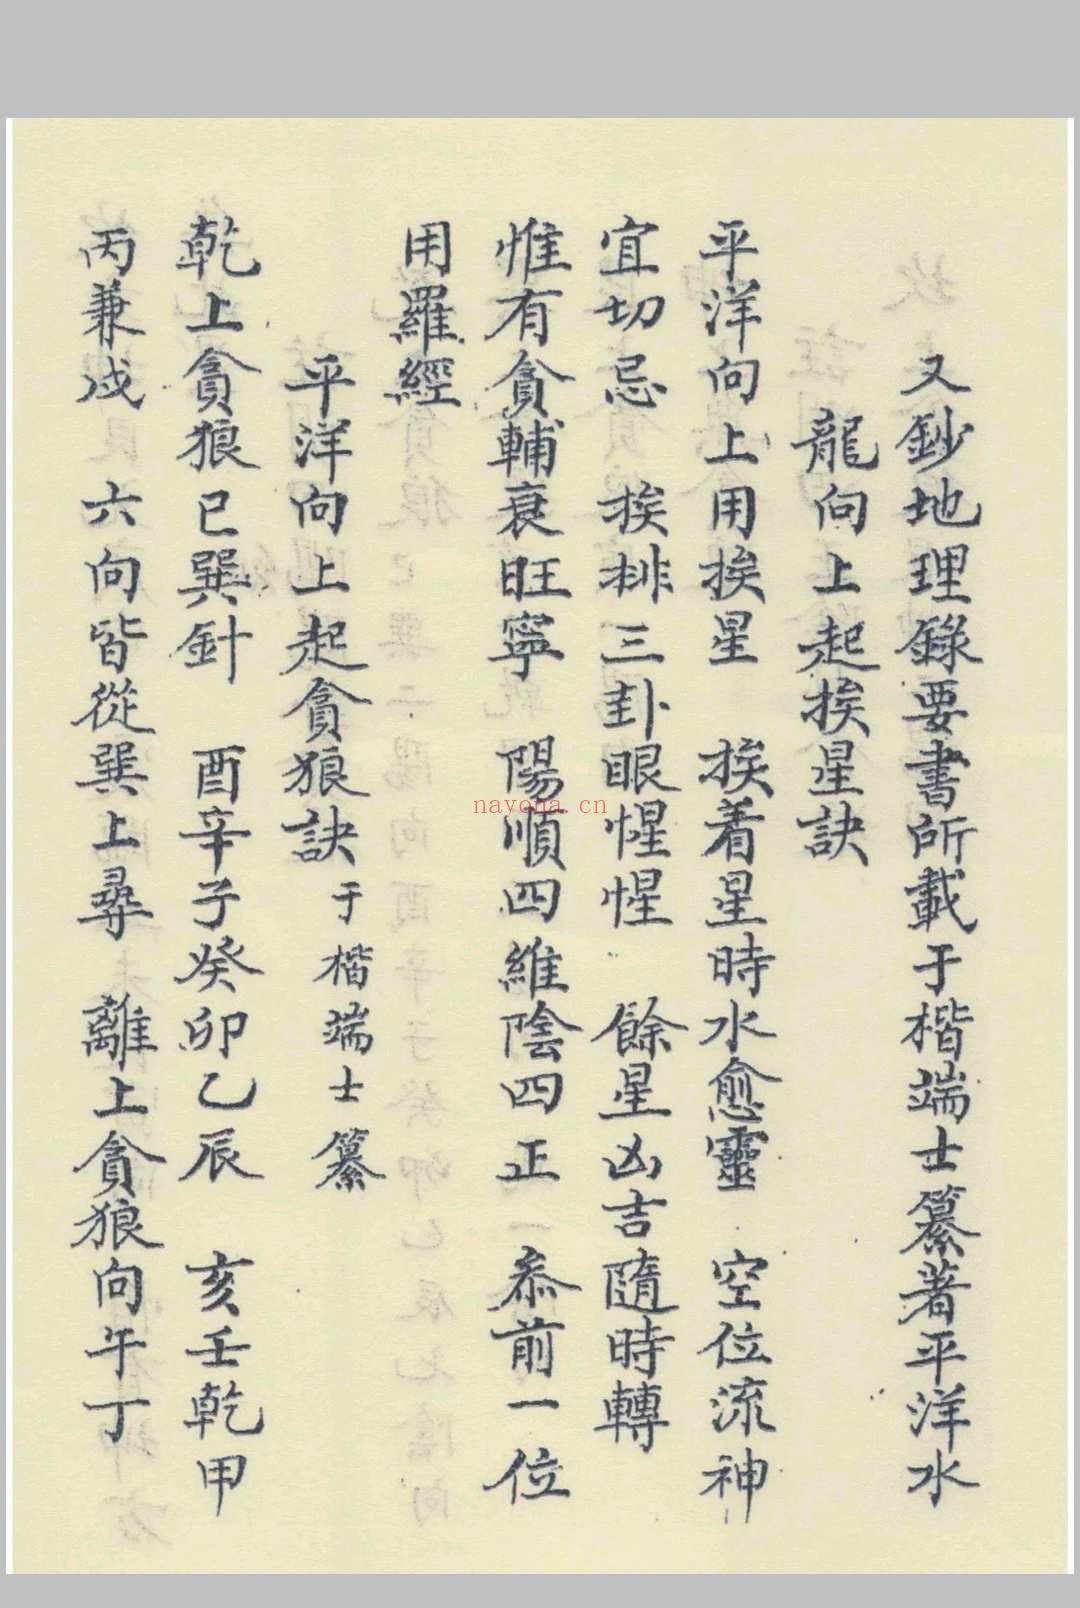 又鈔地理錄要書所載于楷端士纂著平洋水
龍向上起挨星訣
平洋向上用挨星 挨着星時水愈靈 空位流神
宜切忌 挨排三卦眼惺惺 餘星凶吉隨時轉
惟有貪輔衰旺寧 陽順四維陰四正 叅前一位
用羅經
平洋向上起貪狼訣于楷端士纂
乾上貪狼巳巽針 酉辛子癸卯乙辰 亥壬乾甲
丙兼戌 六向皆從巽上尋 離上貪狼向午丁
nayona.cn